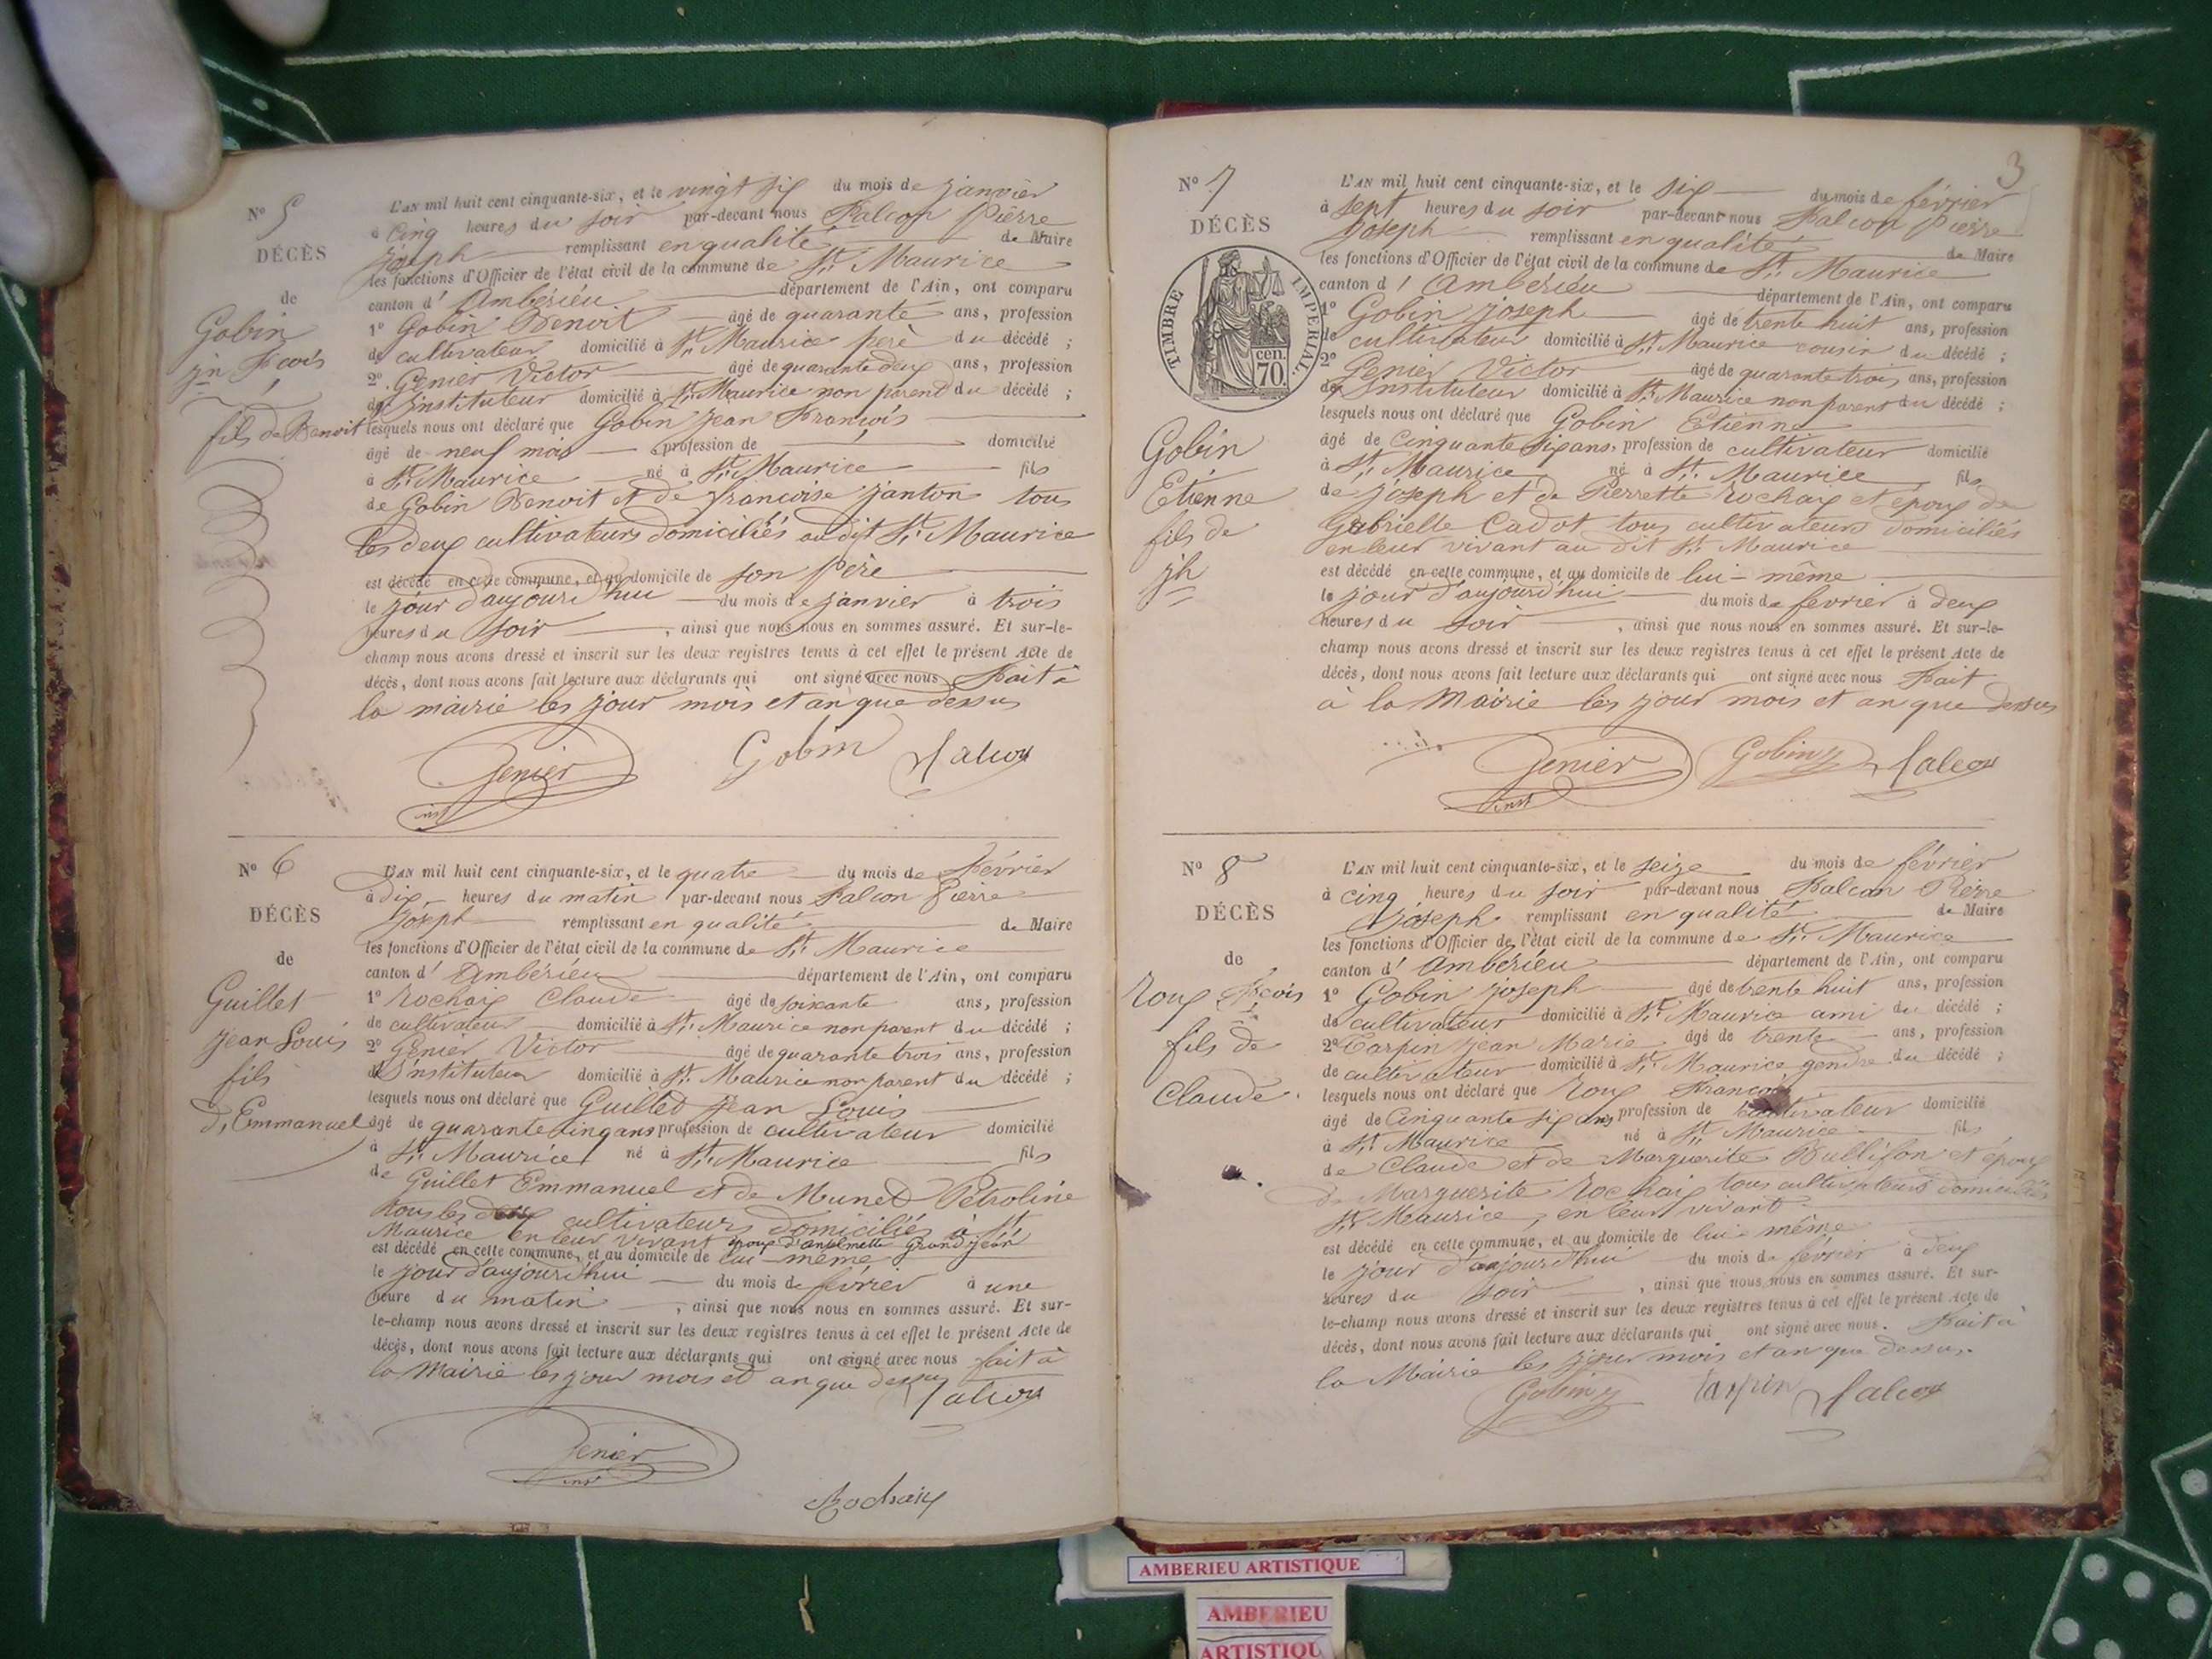 Nº 5
DÉCÈS
de
Gobin
jn fcois
fils de Benoit
L'AN mil huit cent cinquante-six, et le vingt six du mois de janvier
à Cinq heures du soir par-devant nous Falcon Pierre
Joseph remplissant en qualité de Maire
les fonctions d'Officier de l'état civil de la commune de St. Maurice
canton d' Ambérieu département de l'Ain, ont comparu
1º Gobin Benoit âgé de quarante ans, profession
de cultivateur domicilié à St. Maurice père du décédé ;
2º Genier Victor âgé de quarante deux ans, profession
d'Instituteur domicilié à St. Maurice non parent du décédé ;
lesquels nous ont déclaré que Gobin Jean François
âgé de neuf mois profession de domicilié
à St. Maurice né à St. Maurice fils
de Gobin Benoit et de françoise Janton tous
les deux cultivateurs domiciliés au dit St. Maurice
est décédé en cette commune, et au domicile de son père
le jour d'aujourd'hui du mois de janvier à trois
heures du soir , ainsi que nous nous en sommes assuré. Et sur-le-
champ nous avons dressé et inscrit sur les deux registres tenus à cet effet le présent Acte de
décès, dont nous avons fait lecture aux déclarants qui ont signé avec nous Fait à
la mairie les jour mois et an que dessus
Genier Gobin falcon
inst
Nº 6
DÉCÈS
de
Guillet
Jean Louis
fils
d'Emmanuel
L'AN mil huit cent cinquante-six, et le quatre du mois de Février
à dix heures du matin par-devant nous Falcon Pierre
Joseph remplissant en qualité de Maire
les fonctions d'Officier de l'état civil de la commune de St. Maurice
canton d' Ambérieu département de l'Ain, ont comparu
1º Rochaix Claude âgé de soixante ans, profession
de cultivateur domicilié à St. Maurice non parent du décédé ;
2º Genier Victor âgé de quarante trois ans, profession
d'Instituteur domicilié à St. Maurice non parent du décédé ;
lesquels nous ont déclaré que Guillet Jean Louis
âgé de quarante cinq ans profession de cultivateur domicilié
à St. Maurice né à St. Maurice fils
de Guillet Emmanuel et de Munet Pétroline
tous les deux cultivateurs domiciliés à St.
Maurice en leur vivant époux d'antoinette Grandjean
est décédé en cette commune, et au domicile de lui-même
le jour d'aujourd'hui du mois de février à une
heure du matin , ainsi que nous nous en sommes assuré. Et sur-
le-champ nous avons dressé et inscrit sur les deux registres tenus à cet effet le présent Acte de
décès, dont nous avons fait lecture aux déclarants qui ont signé avec nous fait à
la Mairie les jour mois et an que dessus falcon
Genier
inst
Rochaix
3
Nº 7
DÉCÈS
TIMBRE IMPERIAL.
70. cen.
Gobin
Etienne
fils de
jh
L'AN mil huit cent cinquante-six, et le six du mois de février
à sept heures du soir par-devant nous Falcon Pierre
Joseph remplissant en qualité de Maire
les fonctions d'Officier de l'état civil de la commune de St. Maurice
canton d' Ambérieu département de l'Ain, ont comparu
1º Gobin joseph âgé de trente huit ans, profession
de cultivateur domicilié à St. Maurice cousin du décédé ;
2º Genier Victor âgé de quarante trois ans, profession
d'Instituteur domicilié à St. Maurice non parent du décédé ;
lesquels nous ont déclaré que Gobin Etienne
âgé de Cinquante six ans, profession de cultivateur domicilié
à St. Maurice né à St. Maurice fils
de joseph et de Pierrette Rochaix et époux de
Gabrielle Cadot tous cultivateurs domiciliés
en leur vivant au dit St. Maurice
est décédé en cette commune, et au domicile de lui-même
le jour d'aujourd'hui du mois de février à deux
heures du soir , ainsi que nous nous en sommes assuré. Et sur-le-
champ nous avons dressé et inscrit sur les deux registres tenus à cet effet le présent Acte de
décès, dont nous avons fait lecture aux déclarants qui ont signé avec nous Fait
à la Mairie les jour mois et an que dessus
Genier Gobin j falcon
inst
Nº 8
DÉCÈS
de
Roux fcois
fils de
Claude
L'AN mil huit cent cinquante-six, et le seize du mois de février
à cinq heures du soir par-devant nous Falcon Pierre
Joseph remplissant en qualité de Maire
les fonctions d'Officier de l'état civil de la commune de St. Maurice
canton d' Ambérieu département de l'Ain, ont comparu
1º Gobin joseph âgé de trente huit ans, profession
de cultivateur domicilié à St. Maurice ami du décédé ;
2º Carpin jean Marie âgé de trente ans, profession
de cultivateur domicilié à St. Maurice gendre du décédé ;
lesquels nous ont déclaré que Roux François
âgé de Cinquante six ans profession de cultivateur domicilié
à St. Maurice né à St. Maurice fils
de Claude et de Marguerite Bullifon et époux
de Marguerite Rochaix tous cultivateurs domiciliés
St. Maurice, en leur vivant
est décédé en cette commune, et au domicile de lui-même
le jour d'aujourd'hui du mois de février à deux
heures du soir , ainsi que nous nous en sommes assuré. Et sur-
le-champ nous avons dressé et inscrit sur les deux registres tenus à cet effet le présent Acte de
décès, dont nous avons fait lecture aux déclarants qui ont signé avec nous. Fait à
la Mairie les jour mois et an que dessus.
Gobin j Carpin falcon
AMBERIEU ARTISTIQUE
AMBERIEU
ARTISTIQU